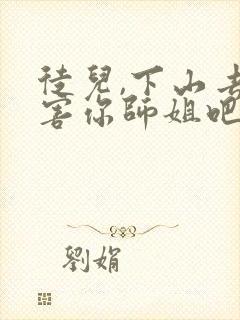 徒兒,下山去
害你師姐吧
劉娟